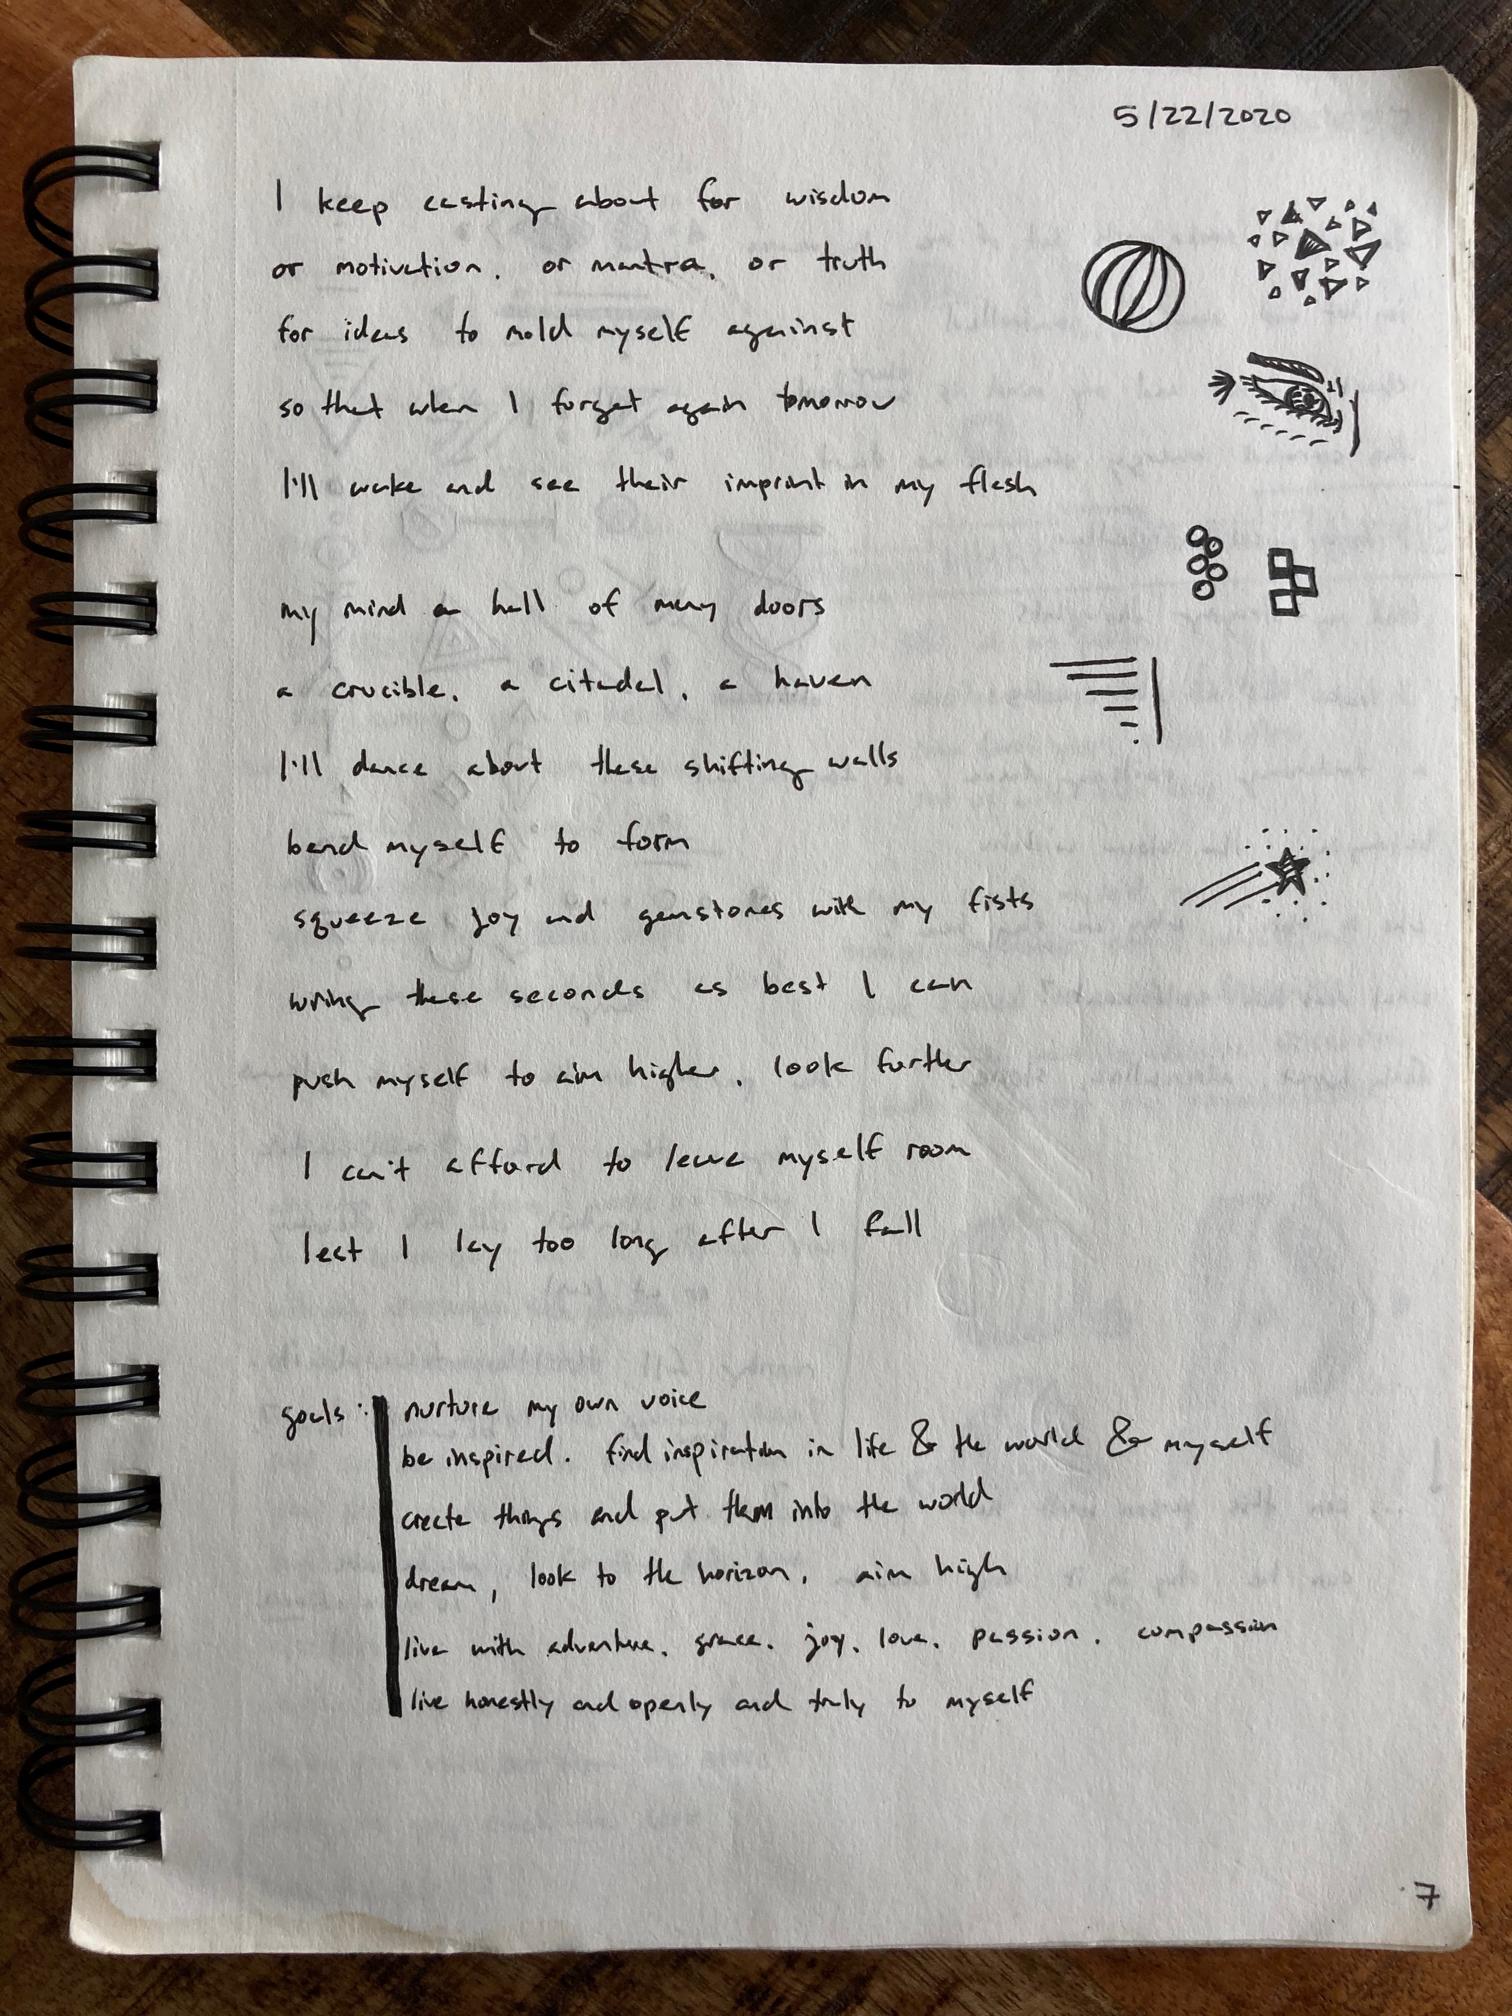 5/22/2020
I keep casting about for wisdom
or motivation, or mantra, or truth
for ideas to mold myself against
so that when I forget again tomorrow
I'll wake and see their imprint in my flesh
my mind a hall of many doors
a crucible, a citadel, a haven
I'll dance about these shifting walls
bend myself to form
squeeze joy and gemstones with my fists
wring these seconds as best I can
push myself to aim higher, look further
I can't afford to leave myself room
lest I lay too long after I fall
goals: nurture my own voice
be inspired. find inspiration in life & the world & myself
create things and put them into the world
dream, look to the horizon, aim high
live with adventure, grace, joy, love, passion, compassion
live honestly and openly and truly to myself
7